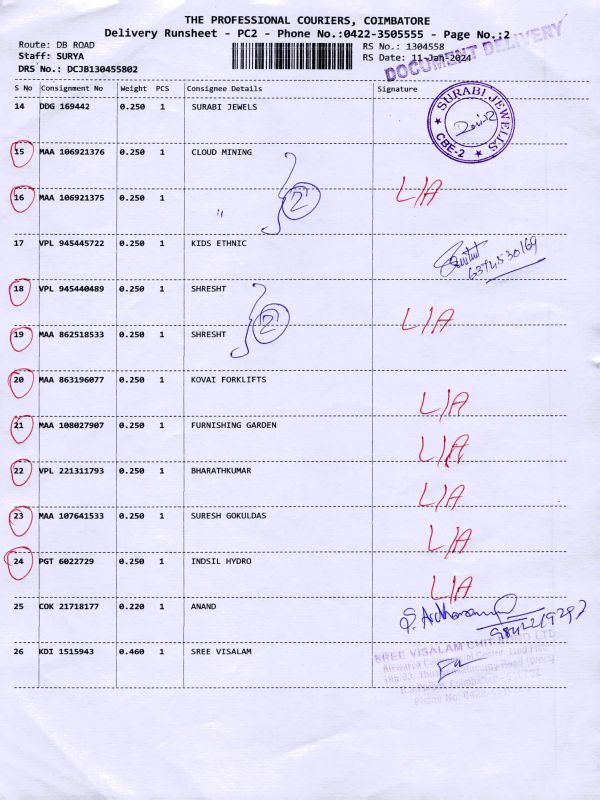 THE PROFESSIONAL COURIERS, COIMBATORE
Delivery Runsheet - PC2 - Phone No.:0422-3505555 - Page No.:2
Route: DB ROAD RS No.: 1304558
Staff: SURYA RS Date: 11-Jan-2024
DRS No.: DCJB130455802
DOCUMENT DELIVERY
S No Consignment No Weight PCS Consignee Details Signature
14 DDG 169442 0.250 1 SURABI JEWELS
SURABI JEWELS CBE-2
15 MAA 106921376 0.250 1 CLOUD MINING
16 MAA 106921375 0.250 1 " 2 L/A
17 VPL 945445722 0.250 1 KIDS ETHNIC
6374530169
18 VPL 945440489 0.250 1 SHRESHT
2 L/A
19 MAA 862518533 0.250 1 SHRESHT
20 MAA 863196077 0.250 1 KOVAI FORKLIFTS
L/A
21 MAA 108027907 0.250 1 FURNISHING GARDEN
L/A
22 VPL 221311793 0.250 1 BHARATHKUMAR
L/A
23 MAA 107641533 0.250 1 SURESH GOKULDAS
L/A
24 PGT 6022729 0.250 1 INDSIL HYDRO
L/A
25 COK 21718177 0.220 1 ANAND
26 KDI 1515943 0.460 1 SREE VISALAM
SREE VISALAM CHIT FUND LTD